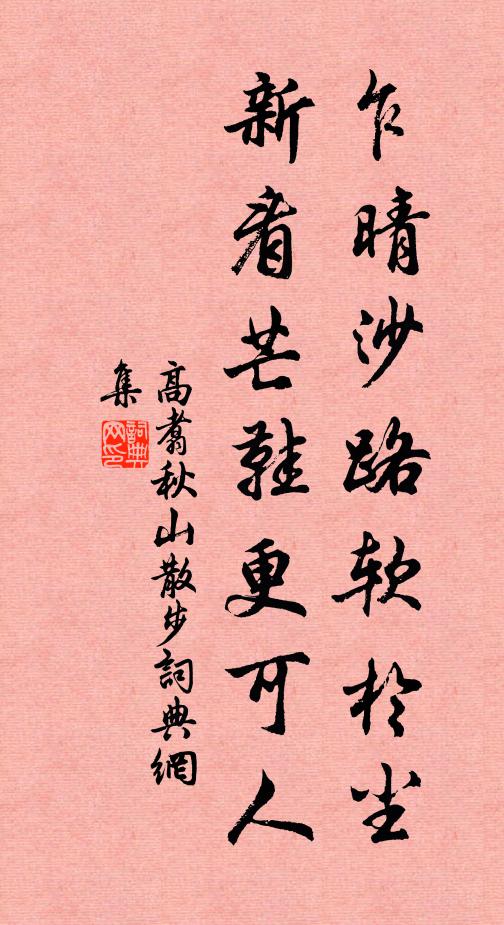 乍晴沙路软於尘
新着芒鞋更可人
高翥秋山散步詞典網
集
詞典
网印